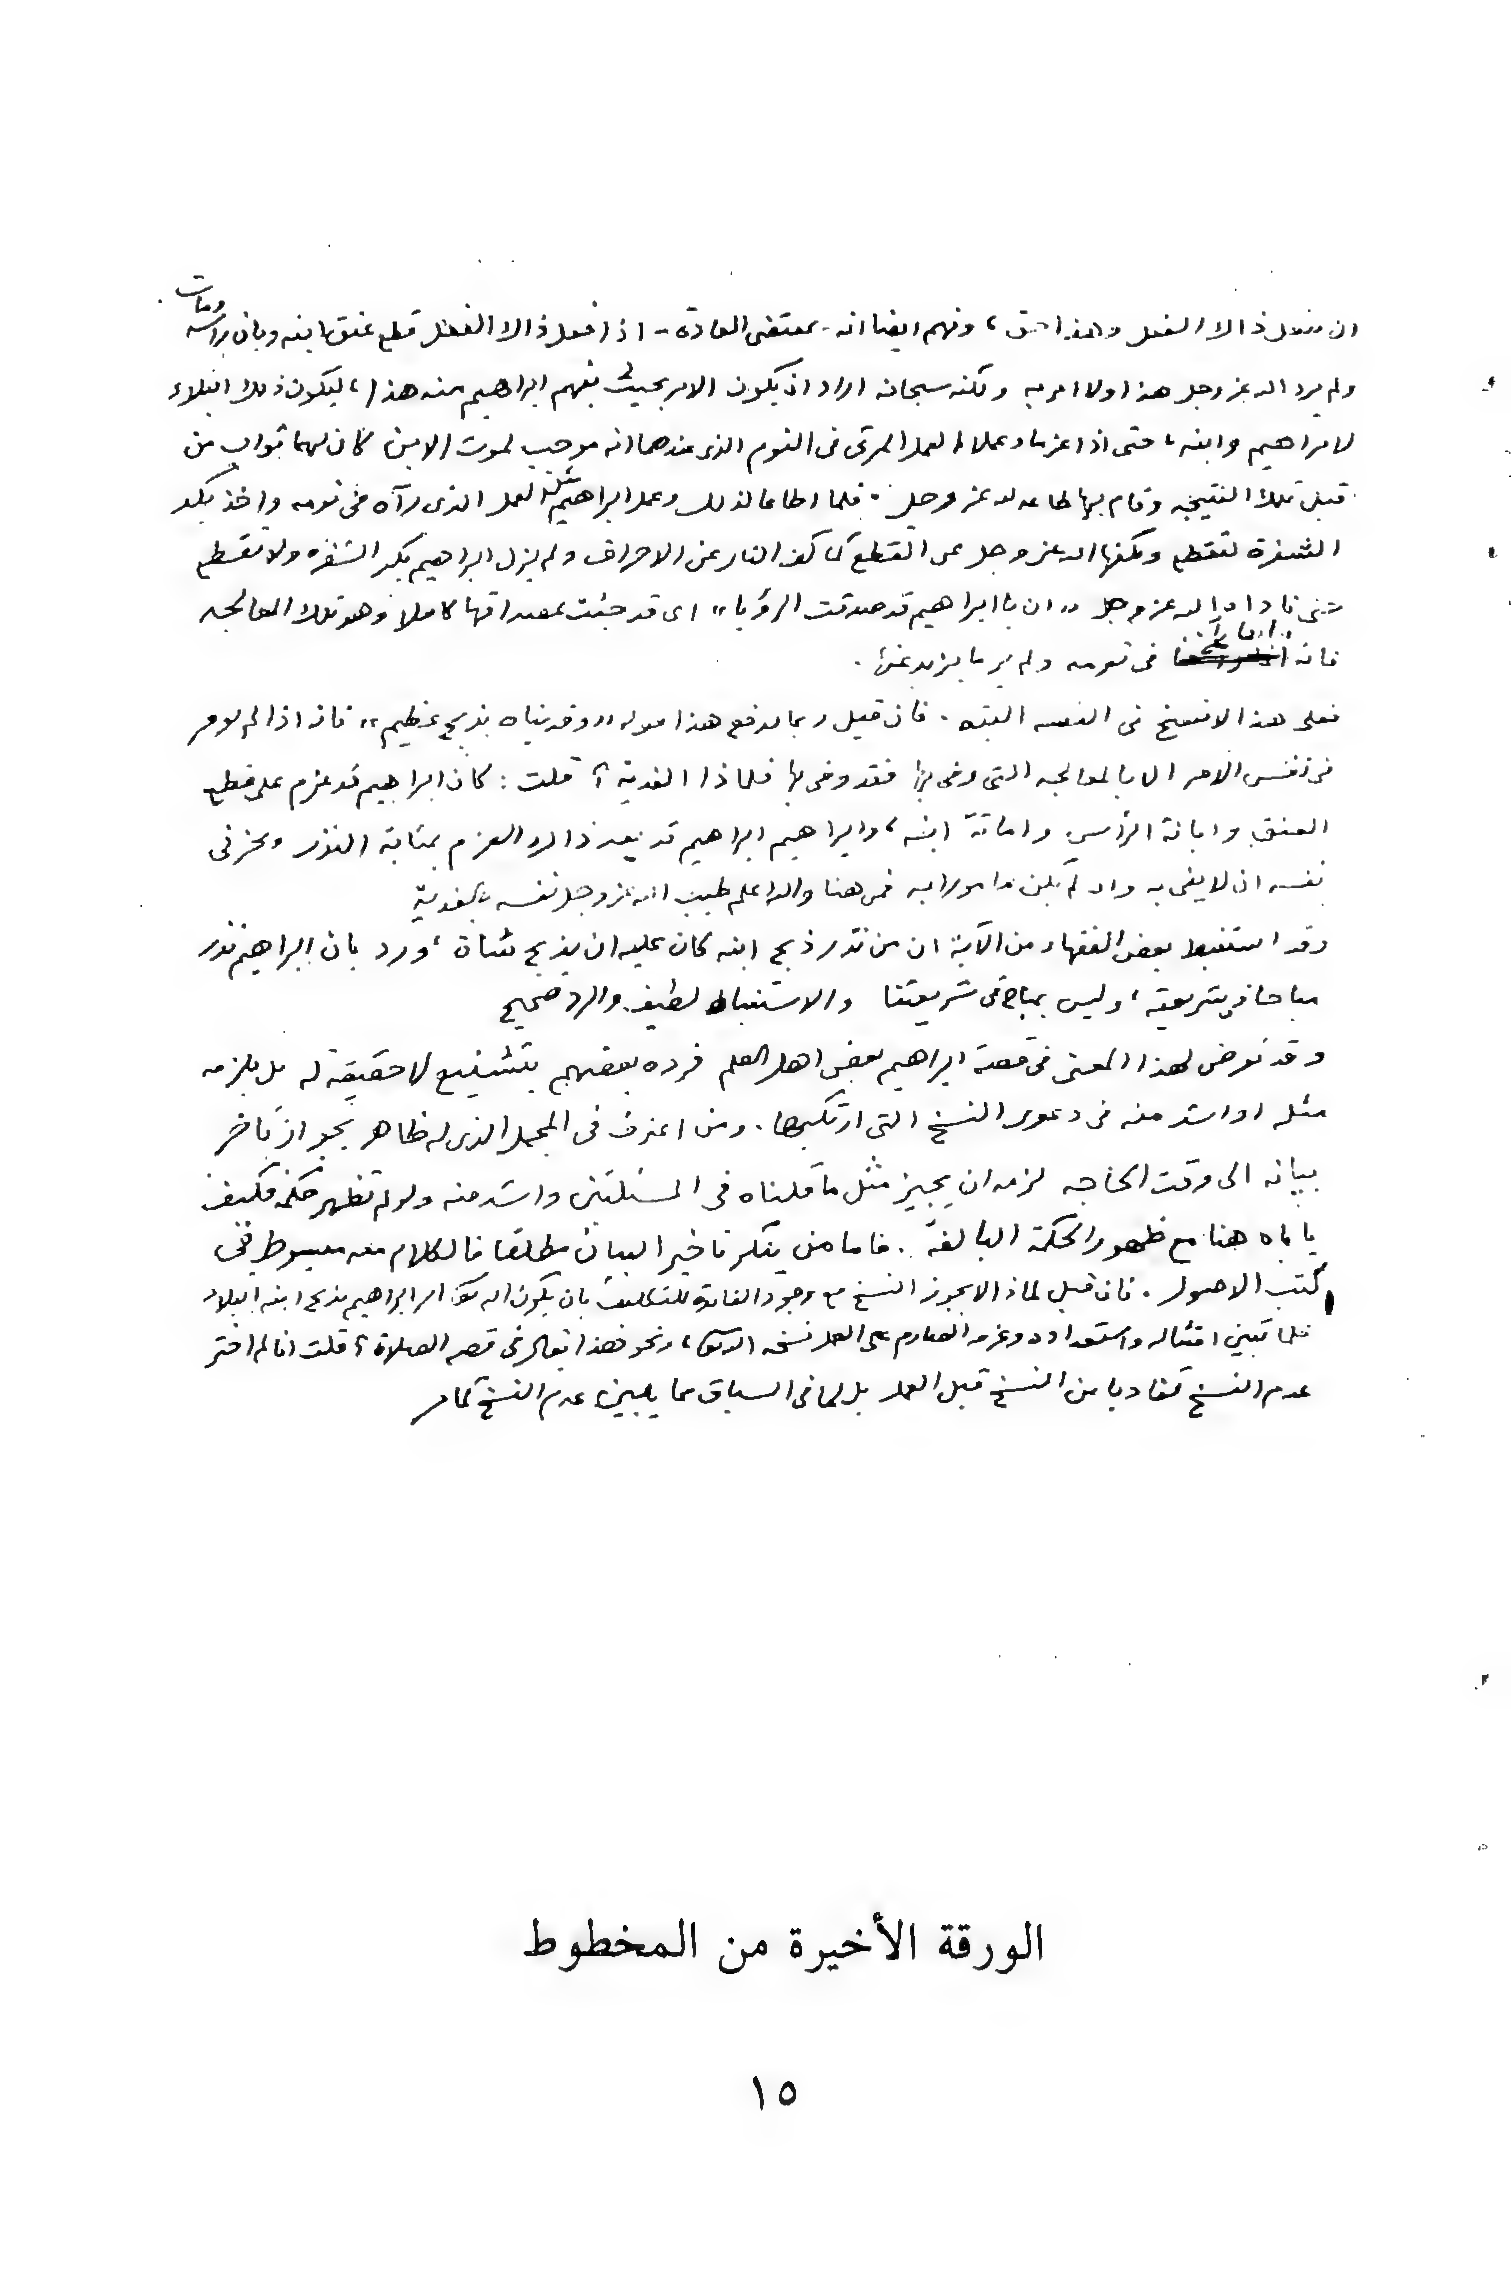 ان يفعل ذالك الفعل وهذا حق ، وفهم ايضا انه - بمقتضى العادة - اذا فعل ذالك الفعل قطع عنق ابنه وبان رأسه ومات
ولم يرد الله عز وجل هذا ولا امر به ولكنه سبحانه اراد ان يكون الامر بحيث يفهم ابراهيم منه هذا ، ليكون ذلك ابتلاء
لابراهيم وابنه ، حتى اذا عزما وعملا العمل المرئى فى النوم الذى عندهما انه موجب لموت الابن كان لهما ثواب من
قبل تلك النتيجه وقام بها طاعه لله عز وجل . فلما اطاعا لذلك وعمل ابراهيم مثل العمل الذى رآه فى نومه واخذ يكد
الشفرة لتقطع ويكفها الله عز وجل عن القطع كما كف النار عن الاحراق ولم يزل ابراهيم يكد الشفره ولا تقطع
حتى ناداه الله عز وجل " ان يا ابراهيم قد صدقت الرؤيا " اى قد جئت بمصداقها كاملا وهو تلك المعالجه
فانه انما رآها فى نومه ولم ير ما يزيد عنها .
فعلى هذا لا نسخ فى القصه البته . فان قيل ربما يدفع هذا قوله " وفديناه بذبح عظيم " فانه اذا لم يومر
فى نفس الامر الا بالمعالجه التى وفى بها فقد وفى بها فلماذا الفدية ؟ قلت : كان ابراهيم قد عزم على قطع
العنق وابانة الرأس واماتة ابنه ، وابراهيم ابراهيم قد يعد ذالك العزم بمثابة النذر ويحز فى
نفسه ان لا يفى به وان لم يكن مامورا به فمن هنا والله اعلم طيب الله عز وجل نفسه بالفدية
وقد استنبط بعض الفقهاء من الآية ان من نذر ذبح ابنه كان عليه ان يذبح شاة ، ورد بان ابراهيم نذر
مباحا فى شريعته ، وليس بمباح فى شريعتنا والاستنباط لطيف والرد صحيح
وقد تعرض لهذا المعنى فى قصة ابراهيم بعض اهل العلم فرده بعضهم بتشنيع لا حقيقة له بل يلزمه
مثله او اشد منه فى دعوى النسخ التى ارتكبها . ومن اعترف فى المجمل الذى له ظاهر بجواز تاخر
بيانه الى وقت الحاجه لزمه ان يجيز مثل ما قلناه فى المسئلتين واشد منه ولو لم تظهر حكمة فكيف
ياباه هنا مع ظهور الحكمة البالغة . فاما من ينكر تاخير البيان مطلقا فالكلام معه مبسوط فى
كتب الاصول . فان قيل لماذا لا يجوز النسخ مع وجود الفائدة للتكليف بان يكون الله تعالى امر ابراهيم بذبح ابنه ابتلاء
فلما تبين امتثاله واستعداده وعزمه الصارم على العمل نسخه الله تعالى ، ونحو هذا يقال فى قصه الصلاة ؟ قلت انا لم اختر
عدم النسخ تفاديا من النسخ قبل العمل بل لما فى السياق مما يبين عدم النسخ كما مر
الورقة الأخيرة من المخطوط
١٥